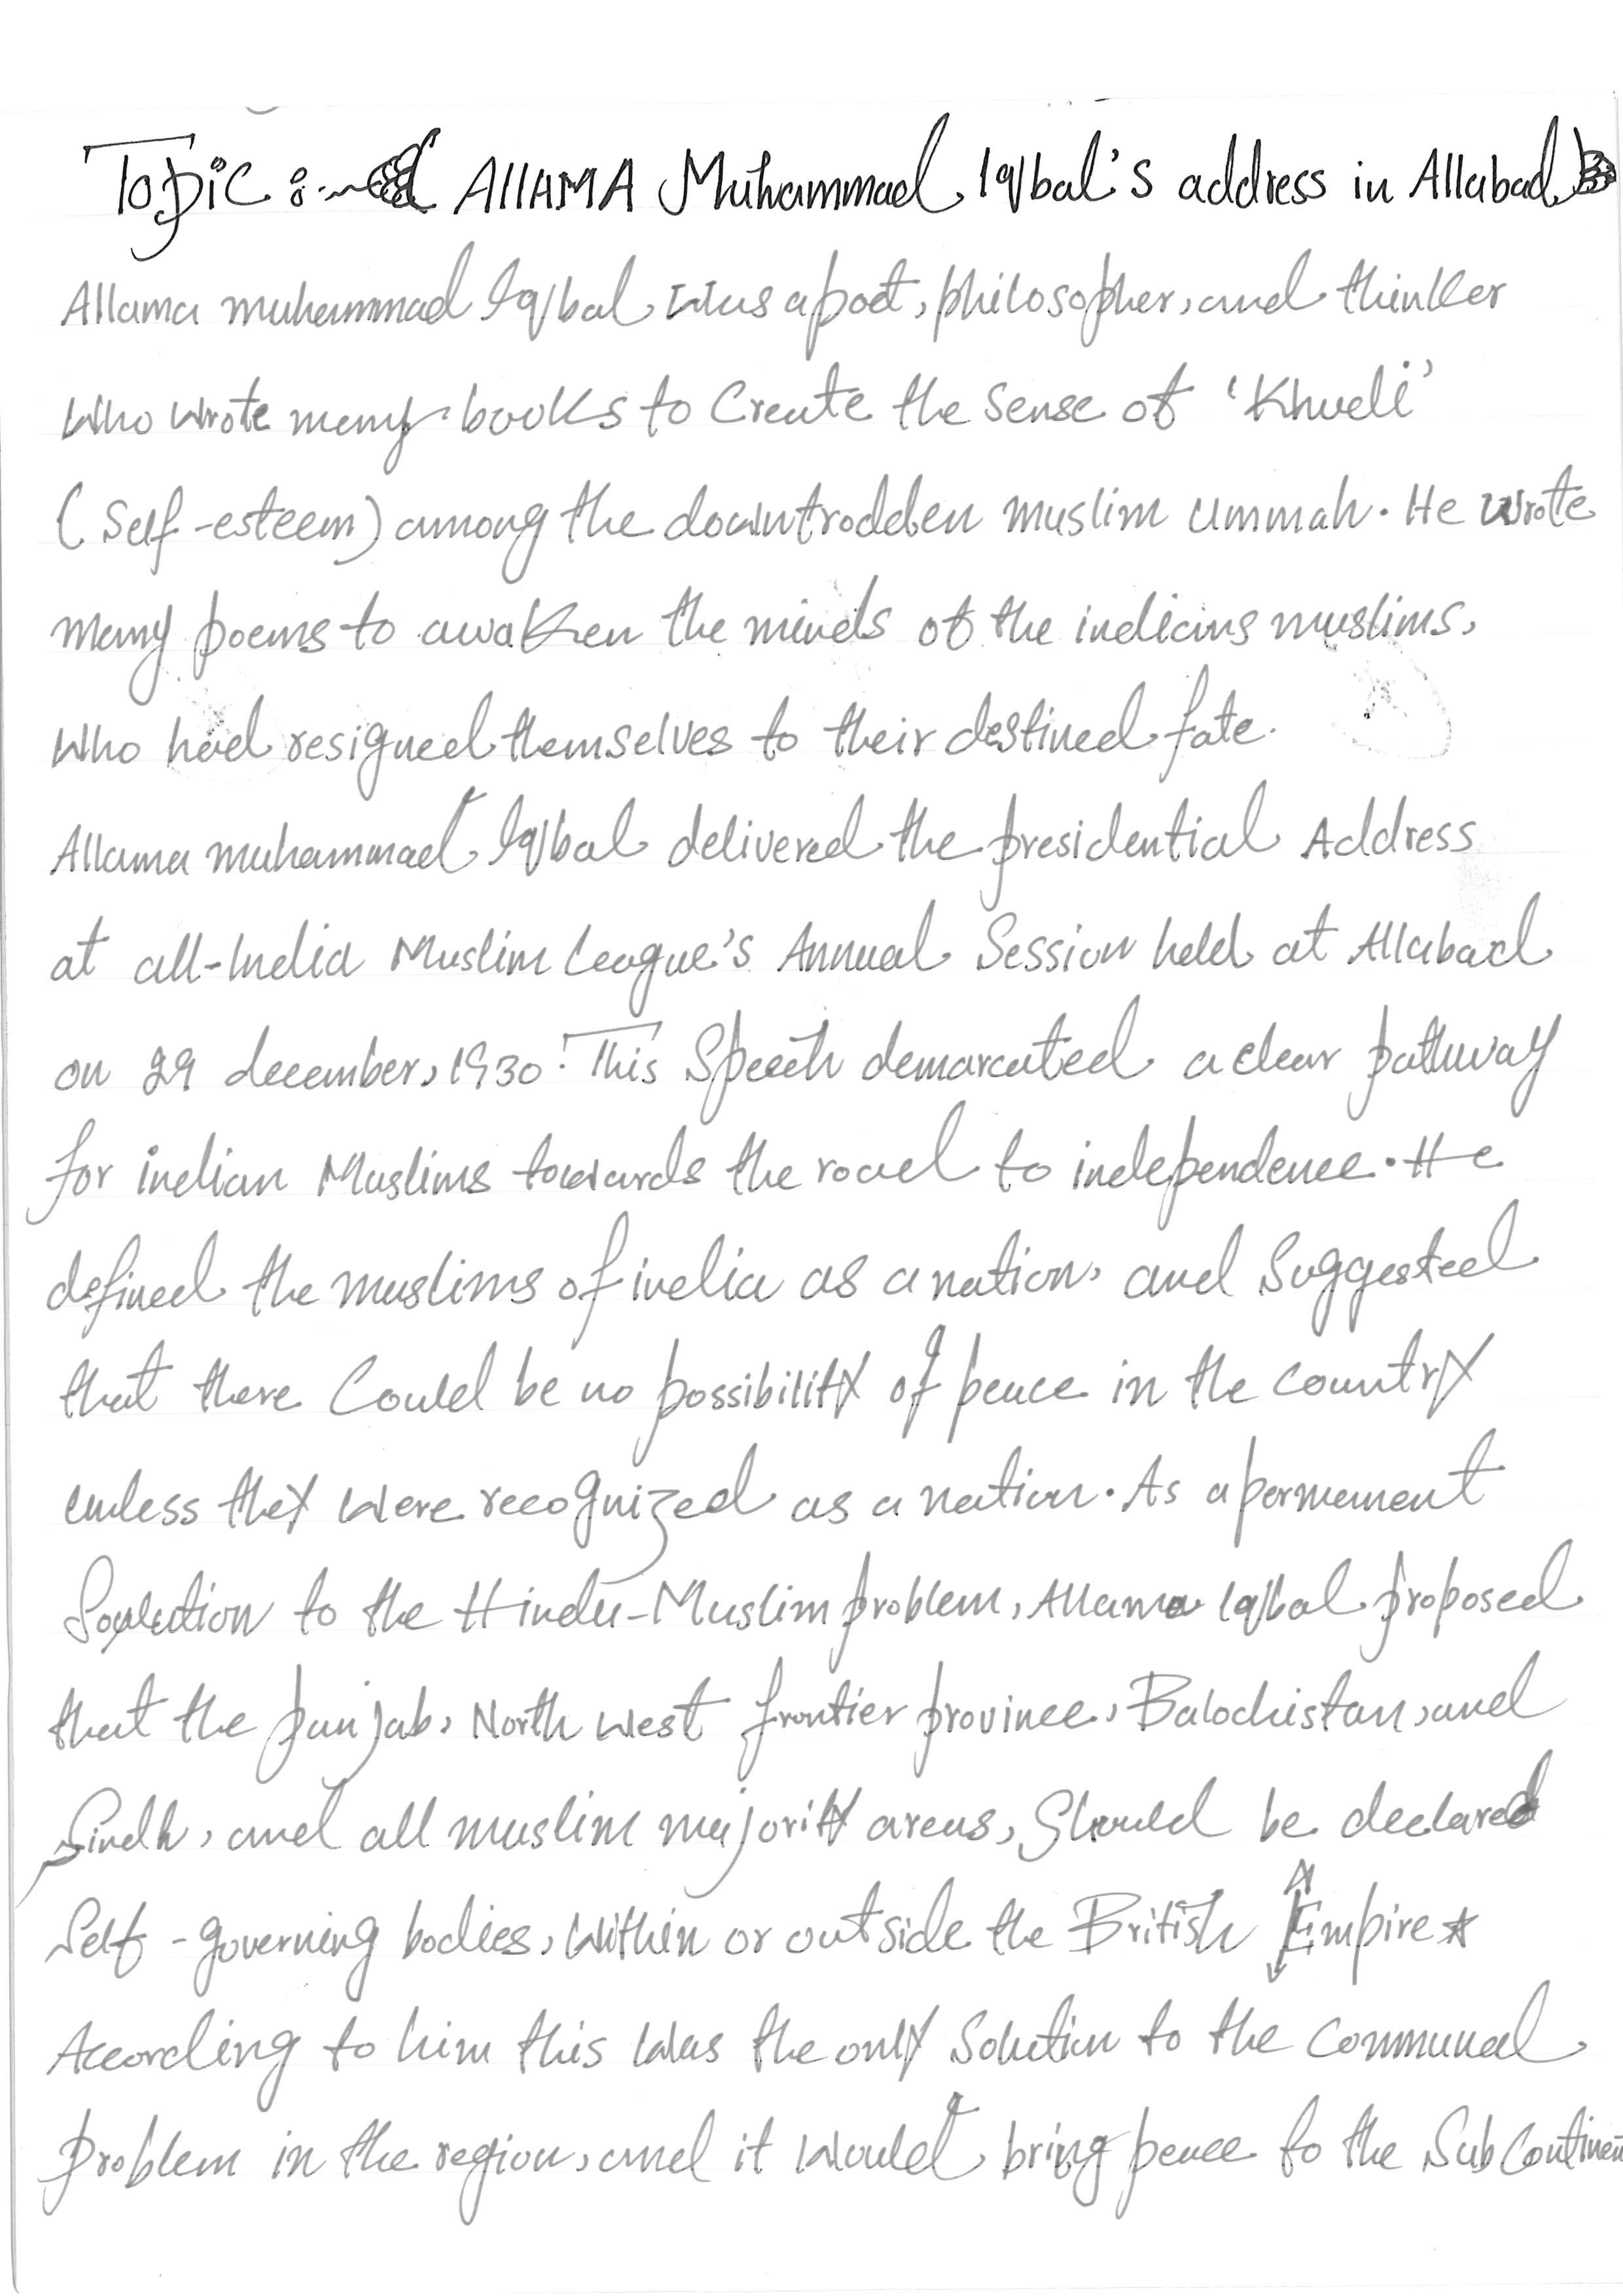 Topic : ALLAMA Muhammad Iqbal's address in Allabad
Allama muhammad Iqbal was a poet, philosopher, and thinker
who wrote many books to Create the sense of 'Khudi'
(Self-esteem) among the downtrodden muslim ummah. He wrote
many poems to awaken the minds of the indians muslims,
who had resigned themselves to their destined fate.
Allama muhammad Iqbal delivered the presidential Address
at all-India Muslim league's Annual Session held at Allabad
on 29 december, 1930. This Speech demarcated a clear pathway
for indian Muslims towards the road to independence. He
defined the muslims of india as a nation, and Suggested
that there Could be no possibility of peace in the country
unless they were recognized as a nation. As a permanent
Soulution to the Hindu-Muslim problem, Allama Iqbal proposed
that the punjab, North west frontier province, Balochistan, and
Sindh, and all muslim majority areas, Should be declared
Self-governing bodies, within or outside the British Empire
According to him this was the only Solution to the communal
problem in the region, and it would bring peace to the SubContinen